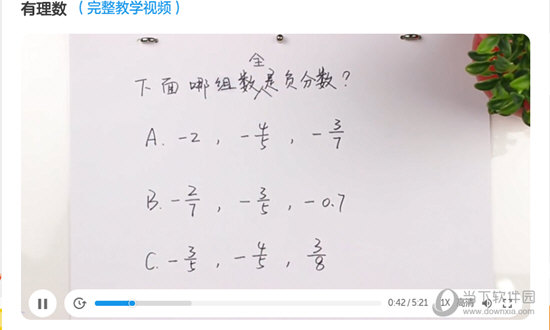 有理数 (完整教学视频)
全
下面哪组数是负分数?
A. -2, -4/5, -3/7
B. -2/7, -3/5, -0.7
C. -3/5, -4/5, 3/8
0:42 / 5:21 1X 高清
当下软件园
www.downxia.com